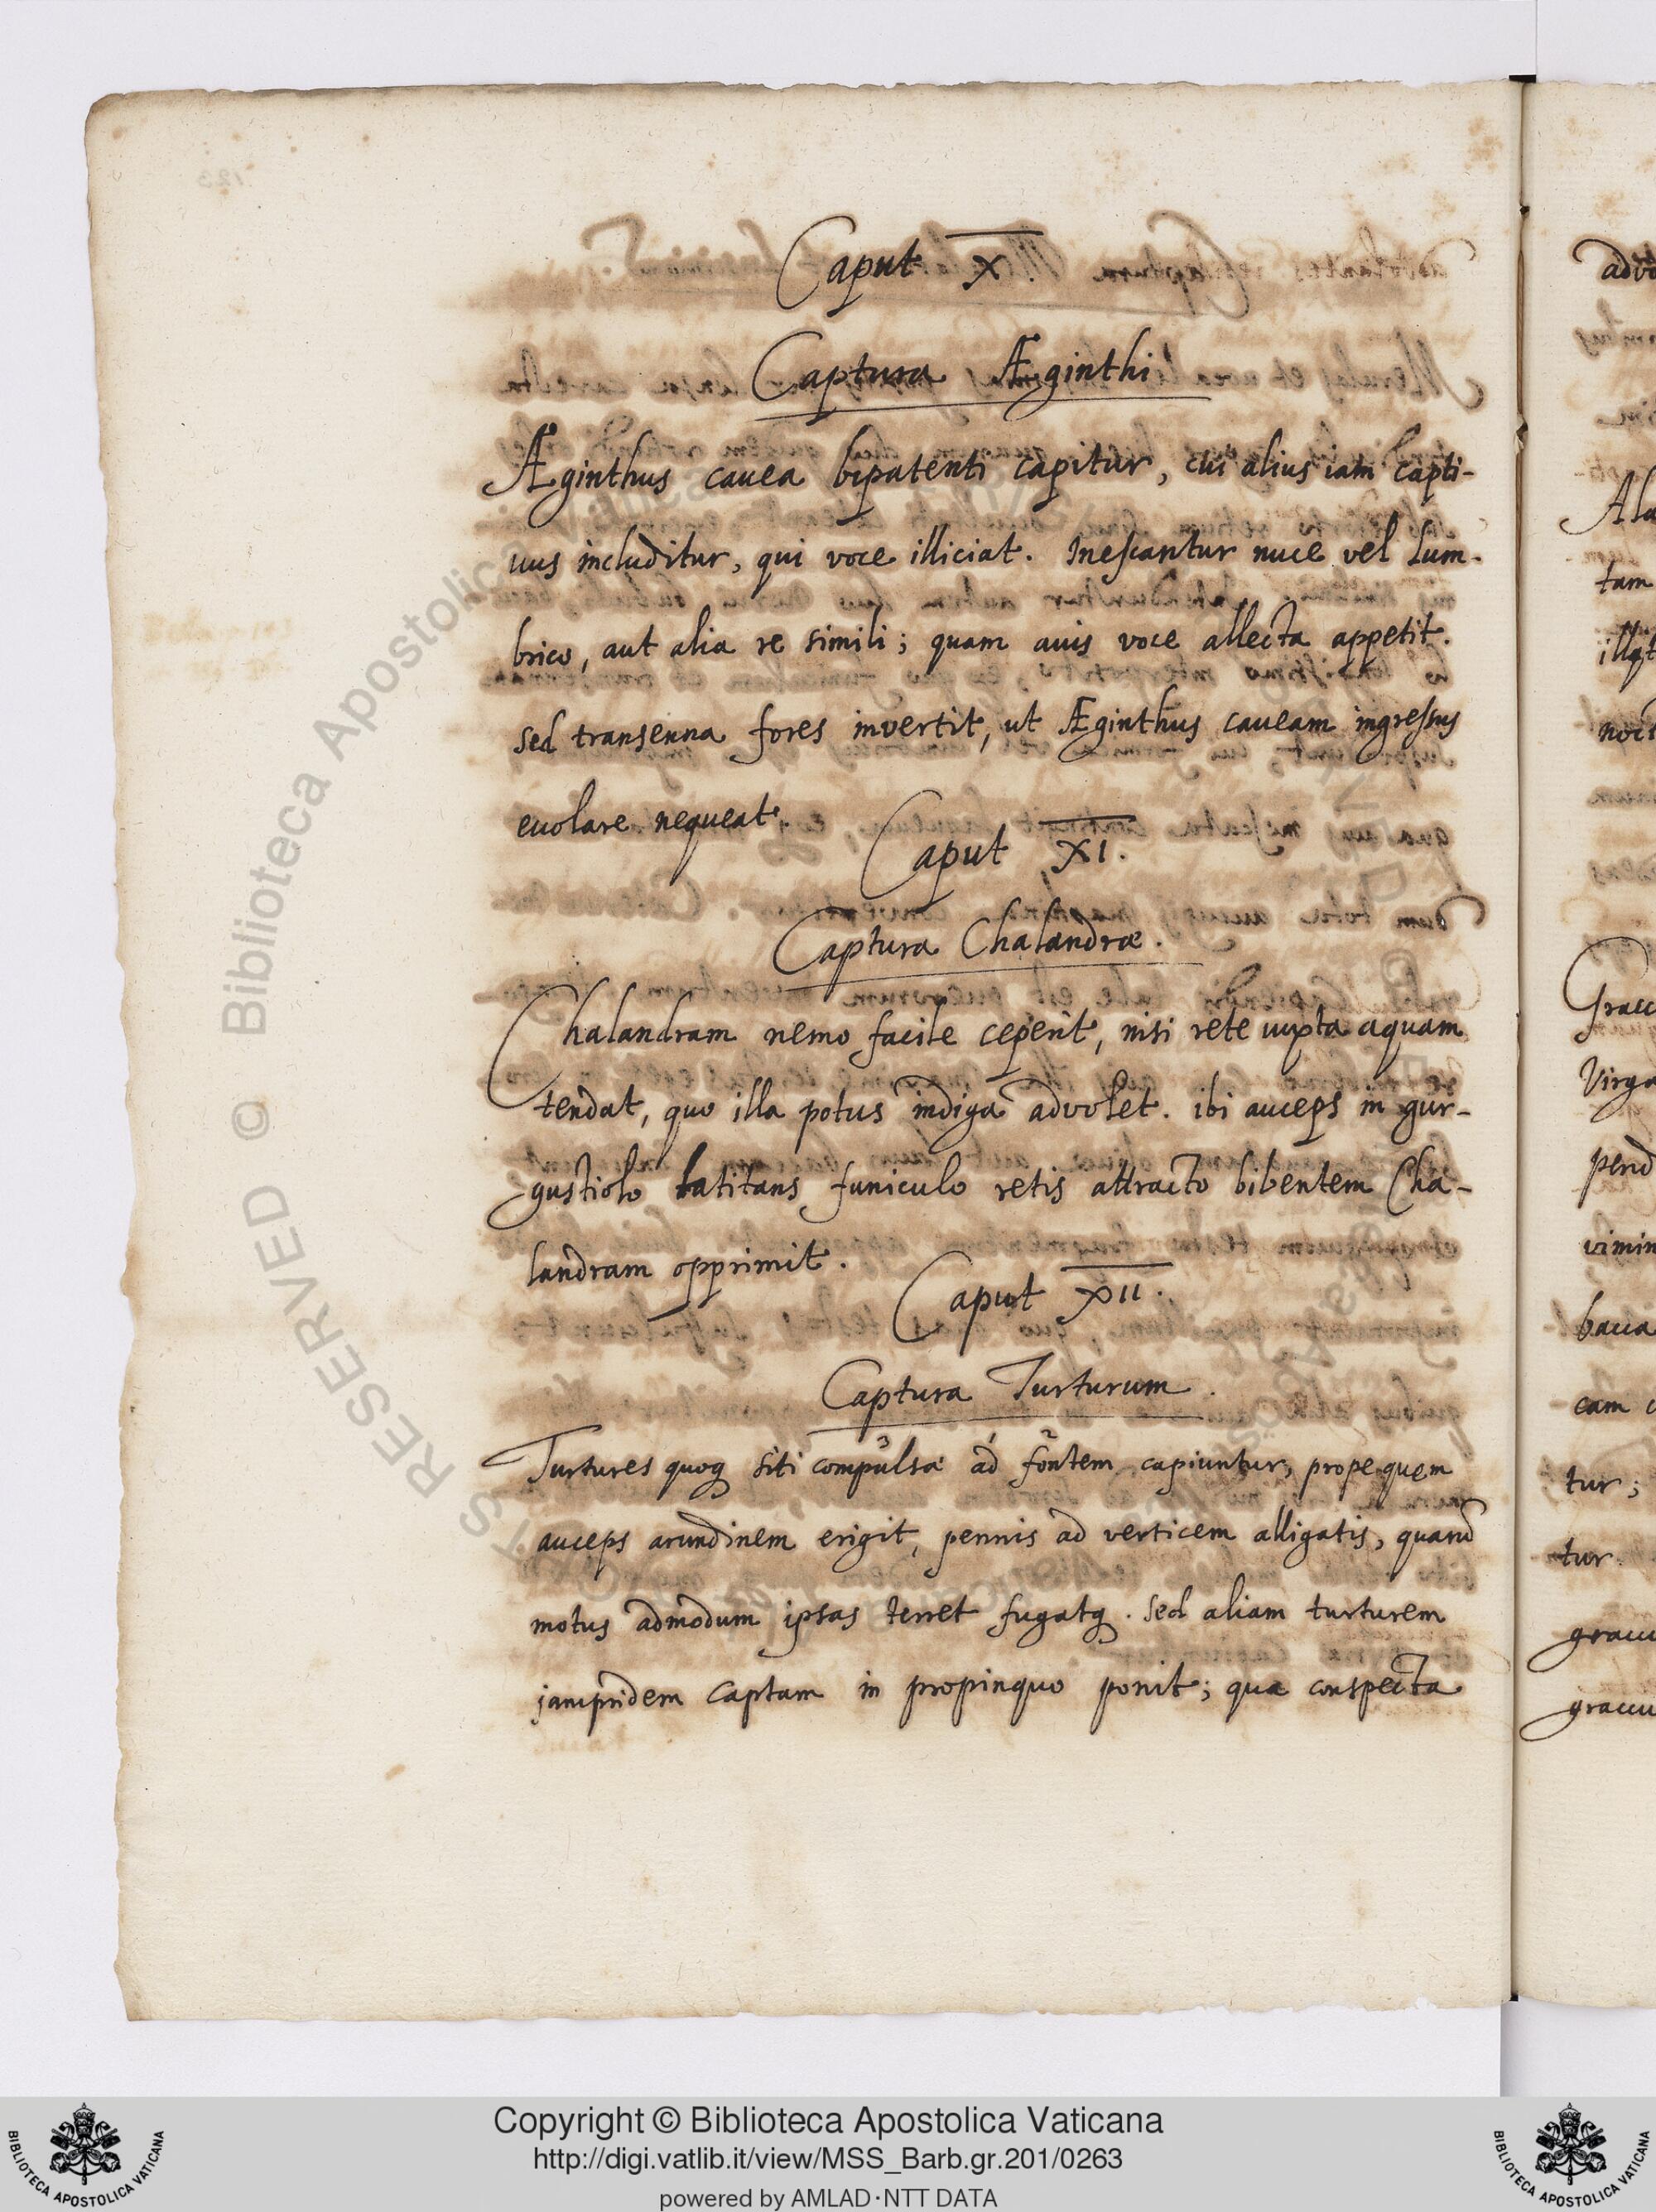 Caput X.
Captura Æginthi
Æginthus cauea bipatenti capitur, cui alius iam capti-
uus includitur, qui voce illiciat. Inescantur nuce vel lum-
brico, aut alia re simili; quam auis voce allecta appetit.
sed transenna fores invertit, ut Æginthus caueam ingressus
euolare nequeat.
Caput XI.
Captura Chalandræ.
Chalandram nemo facile ceperit, nisi rete iuxta aquam
tendat, quo illa potus indiga advolet. ibi auceps in gur-
gustiolo latitans funiculo retis attracto bibentem Cha-
landram opprimit.
Caput XII.
Captura Turturum.
Turtures quoq siti compulsæ ad fontem capiuntur, prope quem
auceps arundinem erigit, pennis ad verticem alligatis, quarũ
motus admodum ipsas terret fugatq. Sed aliam turturem
jampridem captam in propinquo ponit; qua conspecta
advo
Ala
tam
illa
noct
Græc
Virga
pend
vimin
bacca
cam c
tur;
tur
graccu
graccu
RESERVED © Biblioteca Apostolica Vaticana
Copyright © Biblioteca Apostolica Vaticana
http://digi.vatlib.it/view/MSS_Barb.gr.201/0263
powered by AMLAD·NTT DATA
BIBLIOTECA APOSTOLICA VATICANA
BIBLIOTECA APOSTOLICA VATICANA